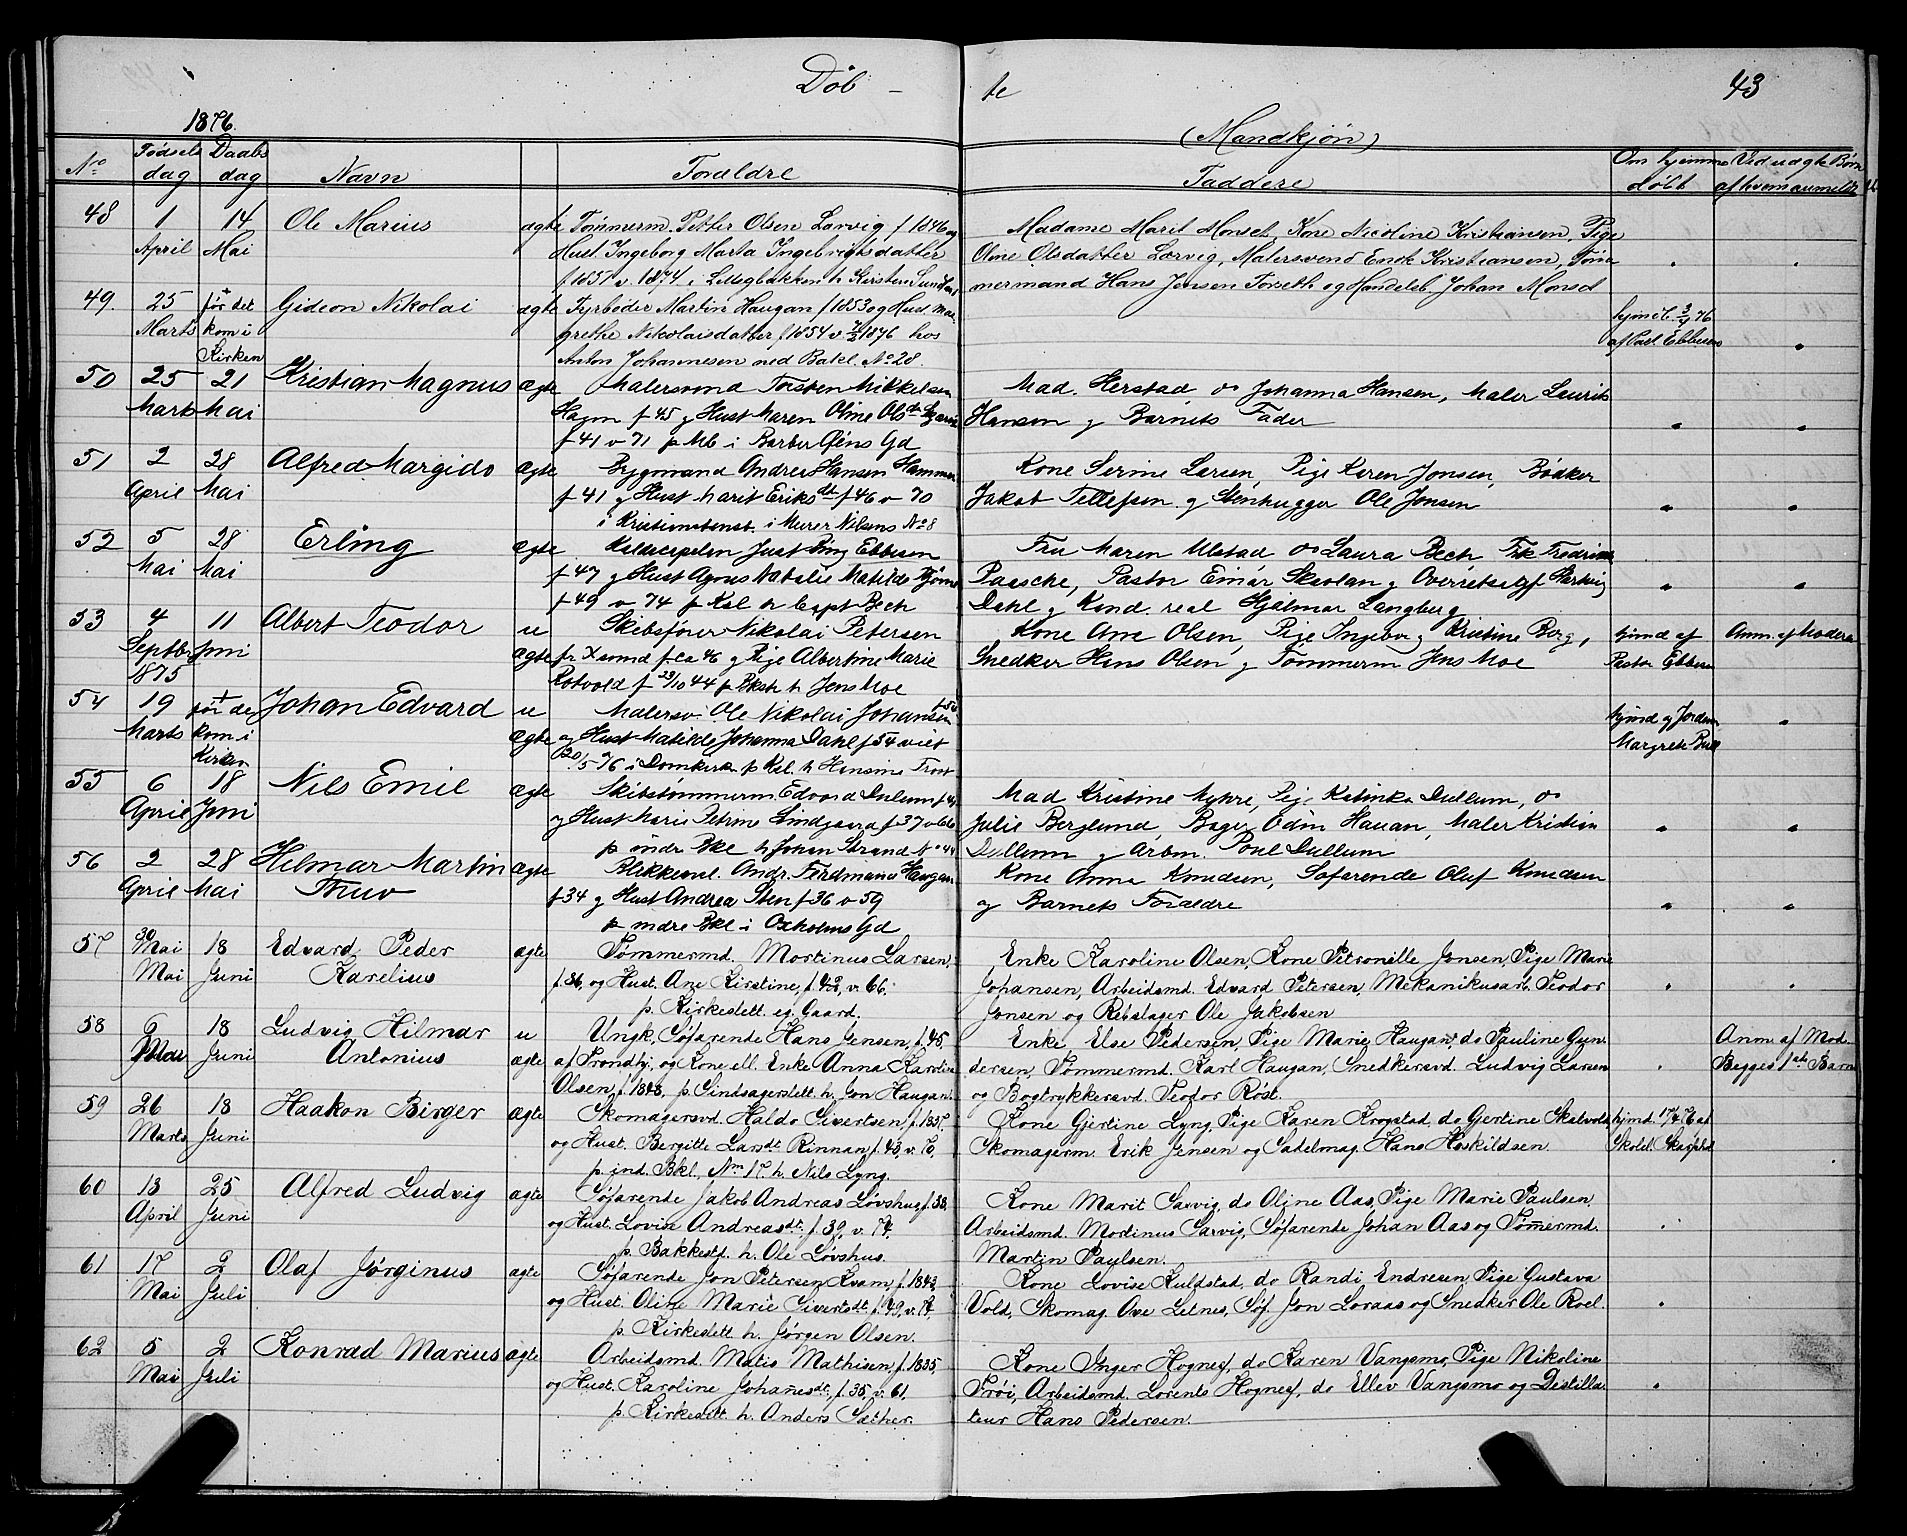 Døb - te
43
1876.
(Mandkjøn)
No Fødselsdag Daabsdag Navn Forældre Faddere Om hjemmedøbt Ved uægte Børn af hvem anmeldt
48 1 14 Ole Marius ægte Tømmerm. Petter Olsen Lorvig f. 1846 og Madame Marit Monset, Kone Nicoline Kristiansen, Pige
April Mai Hust. Ingeborg Marta Ingebrigtsdatter Oline Olsdatter Lorvig, Malersvend Enok Kristiansen, Tøm-
f. 1851 v. 1874 i Lillegbakken h. Kirsten mermand Hans Jensen Forseth og Handelsb. Johan Monset
49. 25 + før det Gideon Nikolai ægte Fyrbøder Martin Haugan f. 1853 og Hust. Mar- hjmdt. 3/4 76
Marts kom i grethe Nikolaisdatter f. 1854 v. 1876 hos af Past. Ebbesen
Kirken Anton Johannesen ned Bakl. No 28.
50 25 21 Kristian Magnus Ægte Malersvend Torsten Mikkelsen Mad. Herstad, do Johanna Hansen, Maler Laurits
Marts Mai Hagen f 45 og Hust Maren Oline Olsdt Hansen og Barnets Fader
f 41 v 71 p Mb i Barber Øiens Gd
51 2 28 Alfred Margido ægte Bygmand Andreas Hansen Hammer Kone Serine Larsen, Pige Karen Jonsen, Bødker
April Mai f 41 og Hust Marit Eriksdt f 46 v 70 Jakob Tellefsen og Stenhugger Ole Jonsen
i Kristianstenst. i Murer Nilsens No 8
52 5 28 Erling ægte Res.capelan Just Bing Ebbesen Fru Maren Ulstad do Laura Bech Frk Fredrikke
Mai Mai f 47 og Hust Agnes Natalie Matilde Paasche, Pastor Einar Skavlan og Overretssagf Hartvig
f 49 v 74 p Kal h Capt Bech Dahl og Kand. real Hjalmar Langberg
53 4 11 Albert Teodor u Skibsfører Nikolai Petersen Kone Ane Olsen, Pige Ingeborg og Kristine Berg, hjmd af Anm. af Moderen
Septbr Juni ægte fr Xsund f ca 46 og Pige Albertine Marie Snedker Hans Olsen og Tømmerm Jens Moe Pastor Ebbesen
1875 Rotvold f 23/10 44 p Bksh h Jens Moe
54 19 + før de Johan Edvard u Malersv. Ole Nikolai Johansen f 54 hjmd og Jordem
Marts kom i ægte og Hust Matilde Johanna Dahl f 54 viet Margrete Bull
Kirken 20/5 76 i Domkirk p Kal. h Hansine Trost
55 6 18 Nils Emil ægte Skibstømmerm. Edvard Dullum f Mad Kristine Myhre, Pige Katinka Dullum, do
April Juni og Hust Maris Petrine Lindgaard f 37 v 66 Julie Berglund, Bager Odin Hauan, Maler Kristian
p indr Bkl h Johan Strand No 44 Dullum og Arbm. Poul Dullum
56 2 28 Hilmar Martin Ægte Blikkensl. Andr. Ferdinand Haugan Kone Anna Knudsen, Søfarende Oluf Knudsen
April Mai Thuv f 34 og Hust Andrea Sten f 36 v 59 og Barnets Forældre
p indre Bkl i Oxholms Gd
57 30 Mai 18 Edvard Peder ægte Tømmermd. Mortinus Larsen, Enke Karoline Olsen, Kone Petronelle Jonsen, Pige Marie
Mai Juni Karelius f. 36, og Hust. Ane Kirstine, f. 42, v. 66. Johansen, Arbeidsmd. Edvard Petersen, Mekanikusarb. Teodor
p. Kirkeslett. eg. Gaard. Jonsen og Rebslager Ole Jakobsen
58 6 18 Ludvig Hilmar u Ungk, Søfarende Hans Jensen, f. 45, Enke Else Pedersen, Pige Marie Haugan, do Pauline Gun- Anm. af Mod.
Mai Juni Antonius ægte af Trondhj., og Kone ell. Enke Anna Karoline dersen, Tømmermd. Karl Haugan, Snedkersvd. Ludvig Larsen Begges 1ste Barn
Olsen, f. 1848, p. Sindsagerslett h. Jon Haugan. og Bogtrykkersvd. Teodor Røst.
59 26 18 Haakon Birger ægte Skomagersvd. Haldo Sivertsen, f. 1837, Kone Gjertine Lyng, Pige Karen Krogstad, do Gjertine Skatvold hjmd. 17/4 76 af
Marts Juni og Hust. Bergitte Larsdt. Rinnan f. 43, v. 76, Skomagerm. Erik Jensen og Sadelmag. Hans Hoskildsen. Skolel. Skarpsted
p. ind. Bkl., Nm 17 h. Nils Lyng.
60 13 25 Alfred Ludvig ægte Søfarende Jakob Andreas Løvshug, f. 38, Kone Marit Sarvig, do Oline Aas, Pige Marie Paulsen,
April Juni og Hust. Lovise Andreasdt. f. 39, v. 74, Arbeidsmd. Mortinus Sarvig, Søfarende Johan Aas og Tømermd.
p. Bakkestd. h. Ole Løvshus. Martin Paulsen.
61 17 2 Olaf Jørginus ægte Søfarende Jon Petersen Kvam, f. 1843, Kone Lovise Kuldstad, do Randi Endresen, Pige Gustava
Mai Juli og Hust. Oline Marie Sivertsdt. f. 49, v. 74, Vold, Skomag. Ove Letnes, Søf. Jon Loraas og Snedker Ole Roel.
p. Kirkeslett h. Jørgen Olsen.
62 5 2 Konrad Marius ægte Arbeidsmd. Matis Mathisen, f. 1835, Kone Inger Hognes, do Karen Vangsmo, Pige Nikoline
Mai Juli og Hust. Karoline Johanesdt. f. 35, v. 61, Trøi, Arbeidsmd. Lorents Hognes, do Ellev Vangsmo og Destilla-
p. Kirkeslett h. Anders Sæther. teur Hans Pedersen.